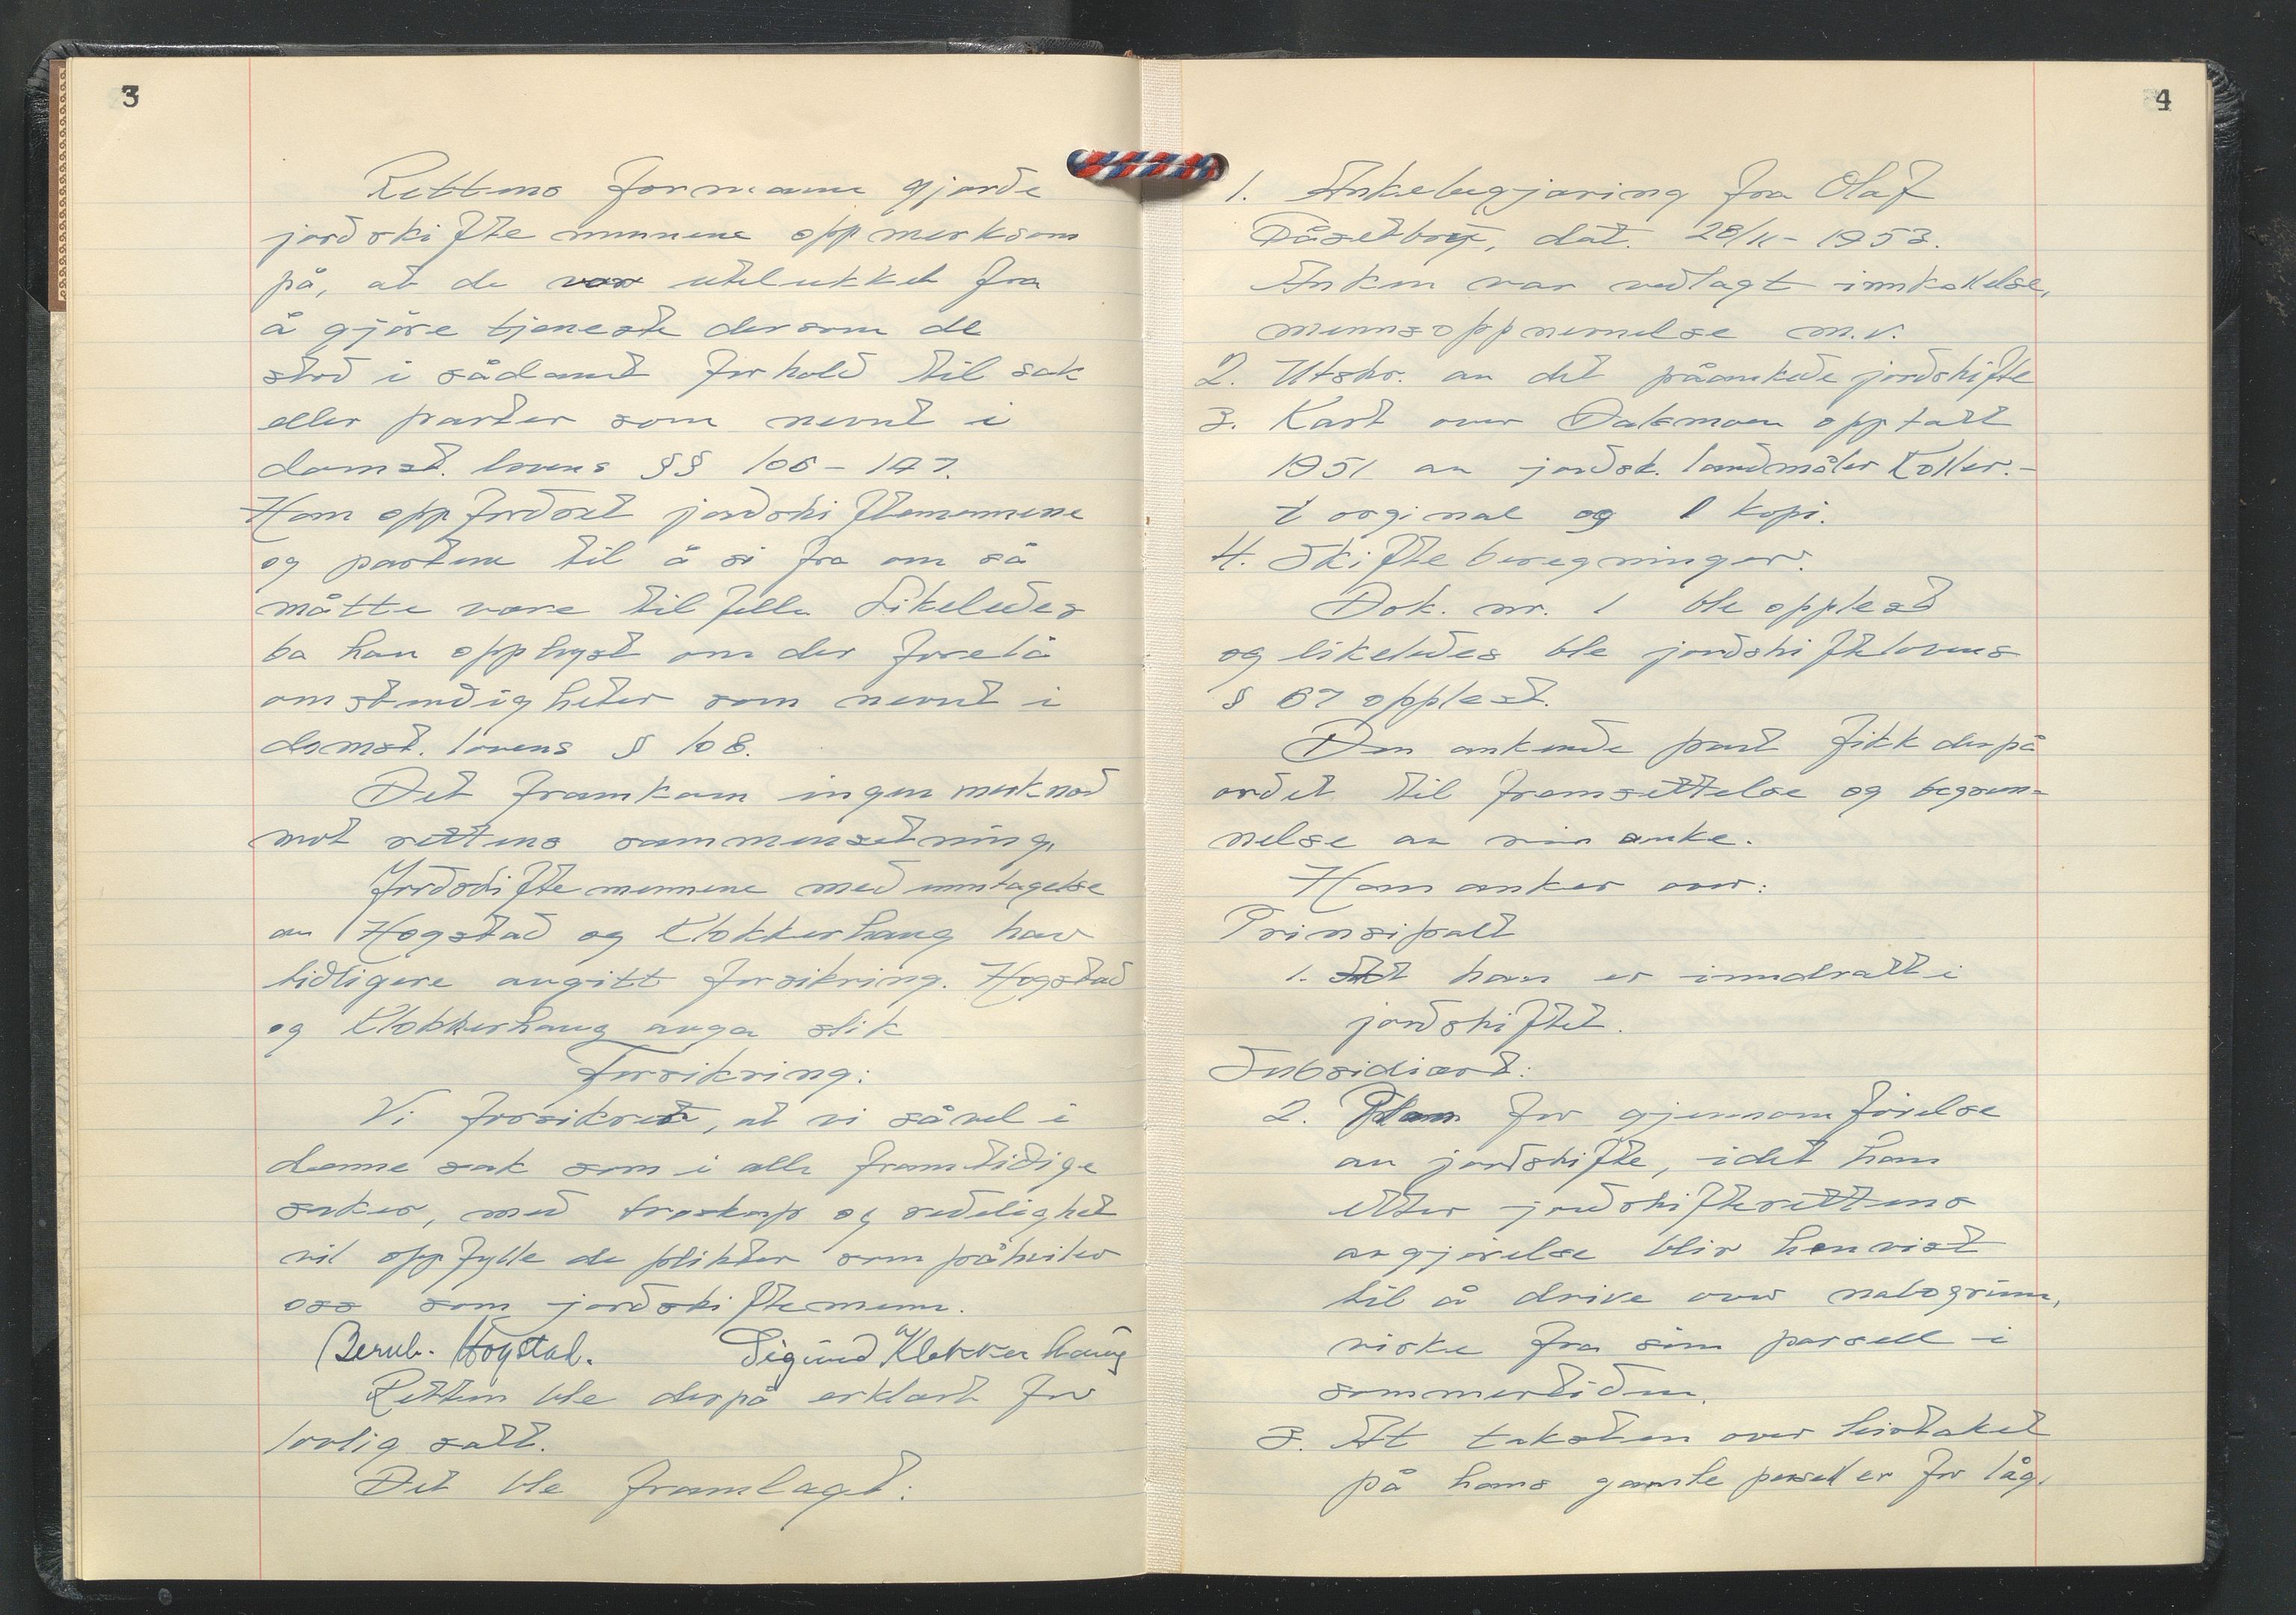 3
Rettens formann gjorde
jordskiftemennene oppmerksom
på, at de var utelukket fra
å gjöre tjeneste dersom de
stod i sådant forhold til sak
eller parter som nevnt i
domst. lovens §§ 106 - 107.
Han oppfordret jordskiftemennene
og partene til å si fra om så
måtte være tilfelle. Likeledes
ba han opplyst om der forelå
omstendigheter som nevnt i
domst. lovens § 108.
Det framkom ingen merknad
mot rettens sammensetning.
Jordskiftemennene med unntagelse
av Hogstad og Klokkerhaug har
tidligere avgitt forsikring. Hogstad
og Klokkerhaug avga slik
Forsikring:
Vi forsikrer, at vi såvel i
denne sak som i alle framtidige
saker, med troskap og redelighet
vil oppfylle de plikter som påhviler
oss som jordskiftemenn.
Bernh. Hogstad. Sigurd Klokkerhaug
Retten ble derpå erklært for
lovlig satt.
Det ble framlagt:
4
1. Ankebegjæring fra Olaf
dat. 28/11 - 1953.
Anken var vedlagt innkallelse,
mennsoppnevnelse m.v.
2. Utskr. av det påankede jordskifte
3. Kart over Dalsmoen opptatt
1951 av jordsk. landmåler Koller. -
1 orginal og 1 kopi.
4. Skifteberegninger.
Dok. nr. 1 ble opplest
og likeledes ble jordskiftelovens
§ 67 opplest.
Den ankende part fikk derpå
ordet til fremsettelse og begrun=
nelse av sin anke.
Han anker over:
Prinsipalt
1. At han er inndratt i
jordskiftet.
Subsidiært:
2. Plan for gjennomförelse
av jordskifte, idet han
etter jordskifterettens
avgjörelse blir henvist
til å drive over nabogrunn,
virke fra sin parsell i
sommertiden.
3. At taksten over leirtaket
på hans gamle parsell er for låg.